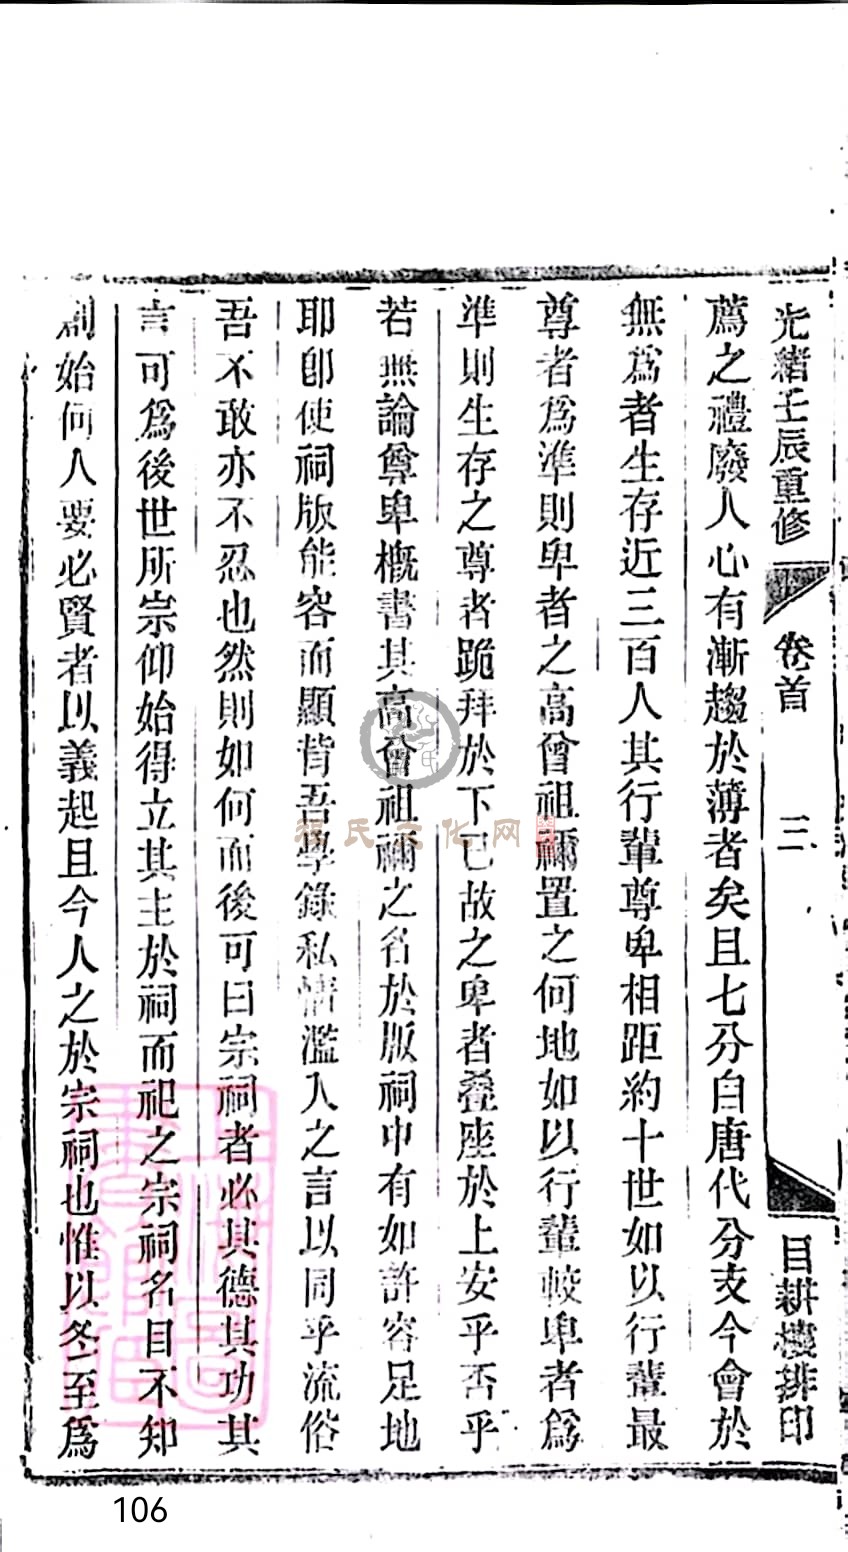 光緒壬辰重修 卷首 三 目耕樓排印
薦之禮廢人心有漸趨於薄者矣且七分自唐代分支今會於
無爲者生存近三百人其行輩尊卑相距約十世如以行輩最
尊者爲準則卑者之高曾祖禰置之何地如以行輩較卑者爲
準則生存之尊者跪拜於下已故之卑者叠座於上安乎否乎
若無論尊卑概書其高曾祖禰之名於版祠中有如許容足地
耶卽使祠版能容而顯背吾學錄私情濫入之言以同乎流俗
吾不敢亦不忍也然則如何而後可曰宗祠者必其德其功其
言可爲後世所宗仰始得立其主於祠而祀之宗祠名目不知
創始何人要必賢者以義起且今人之於宗祠也惟以冬至爲
程氏文化网
106